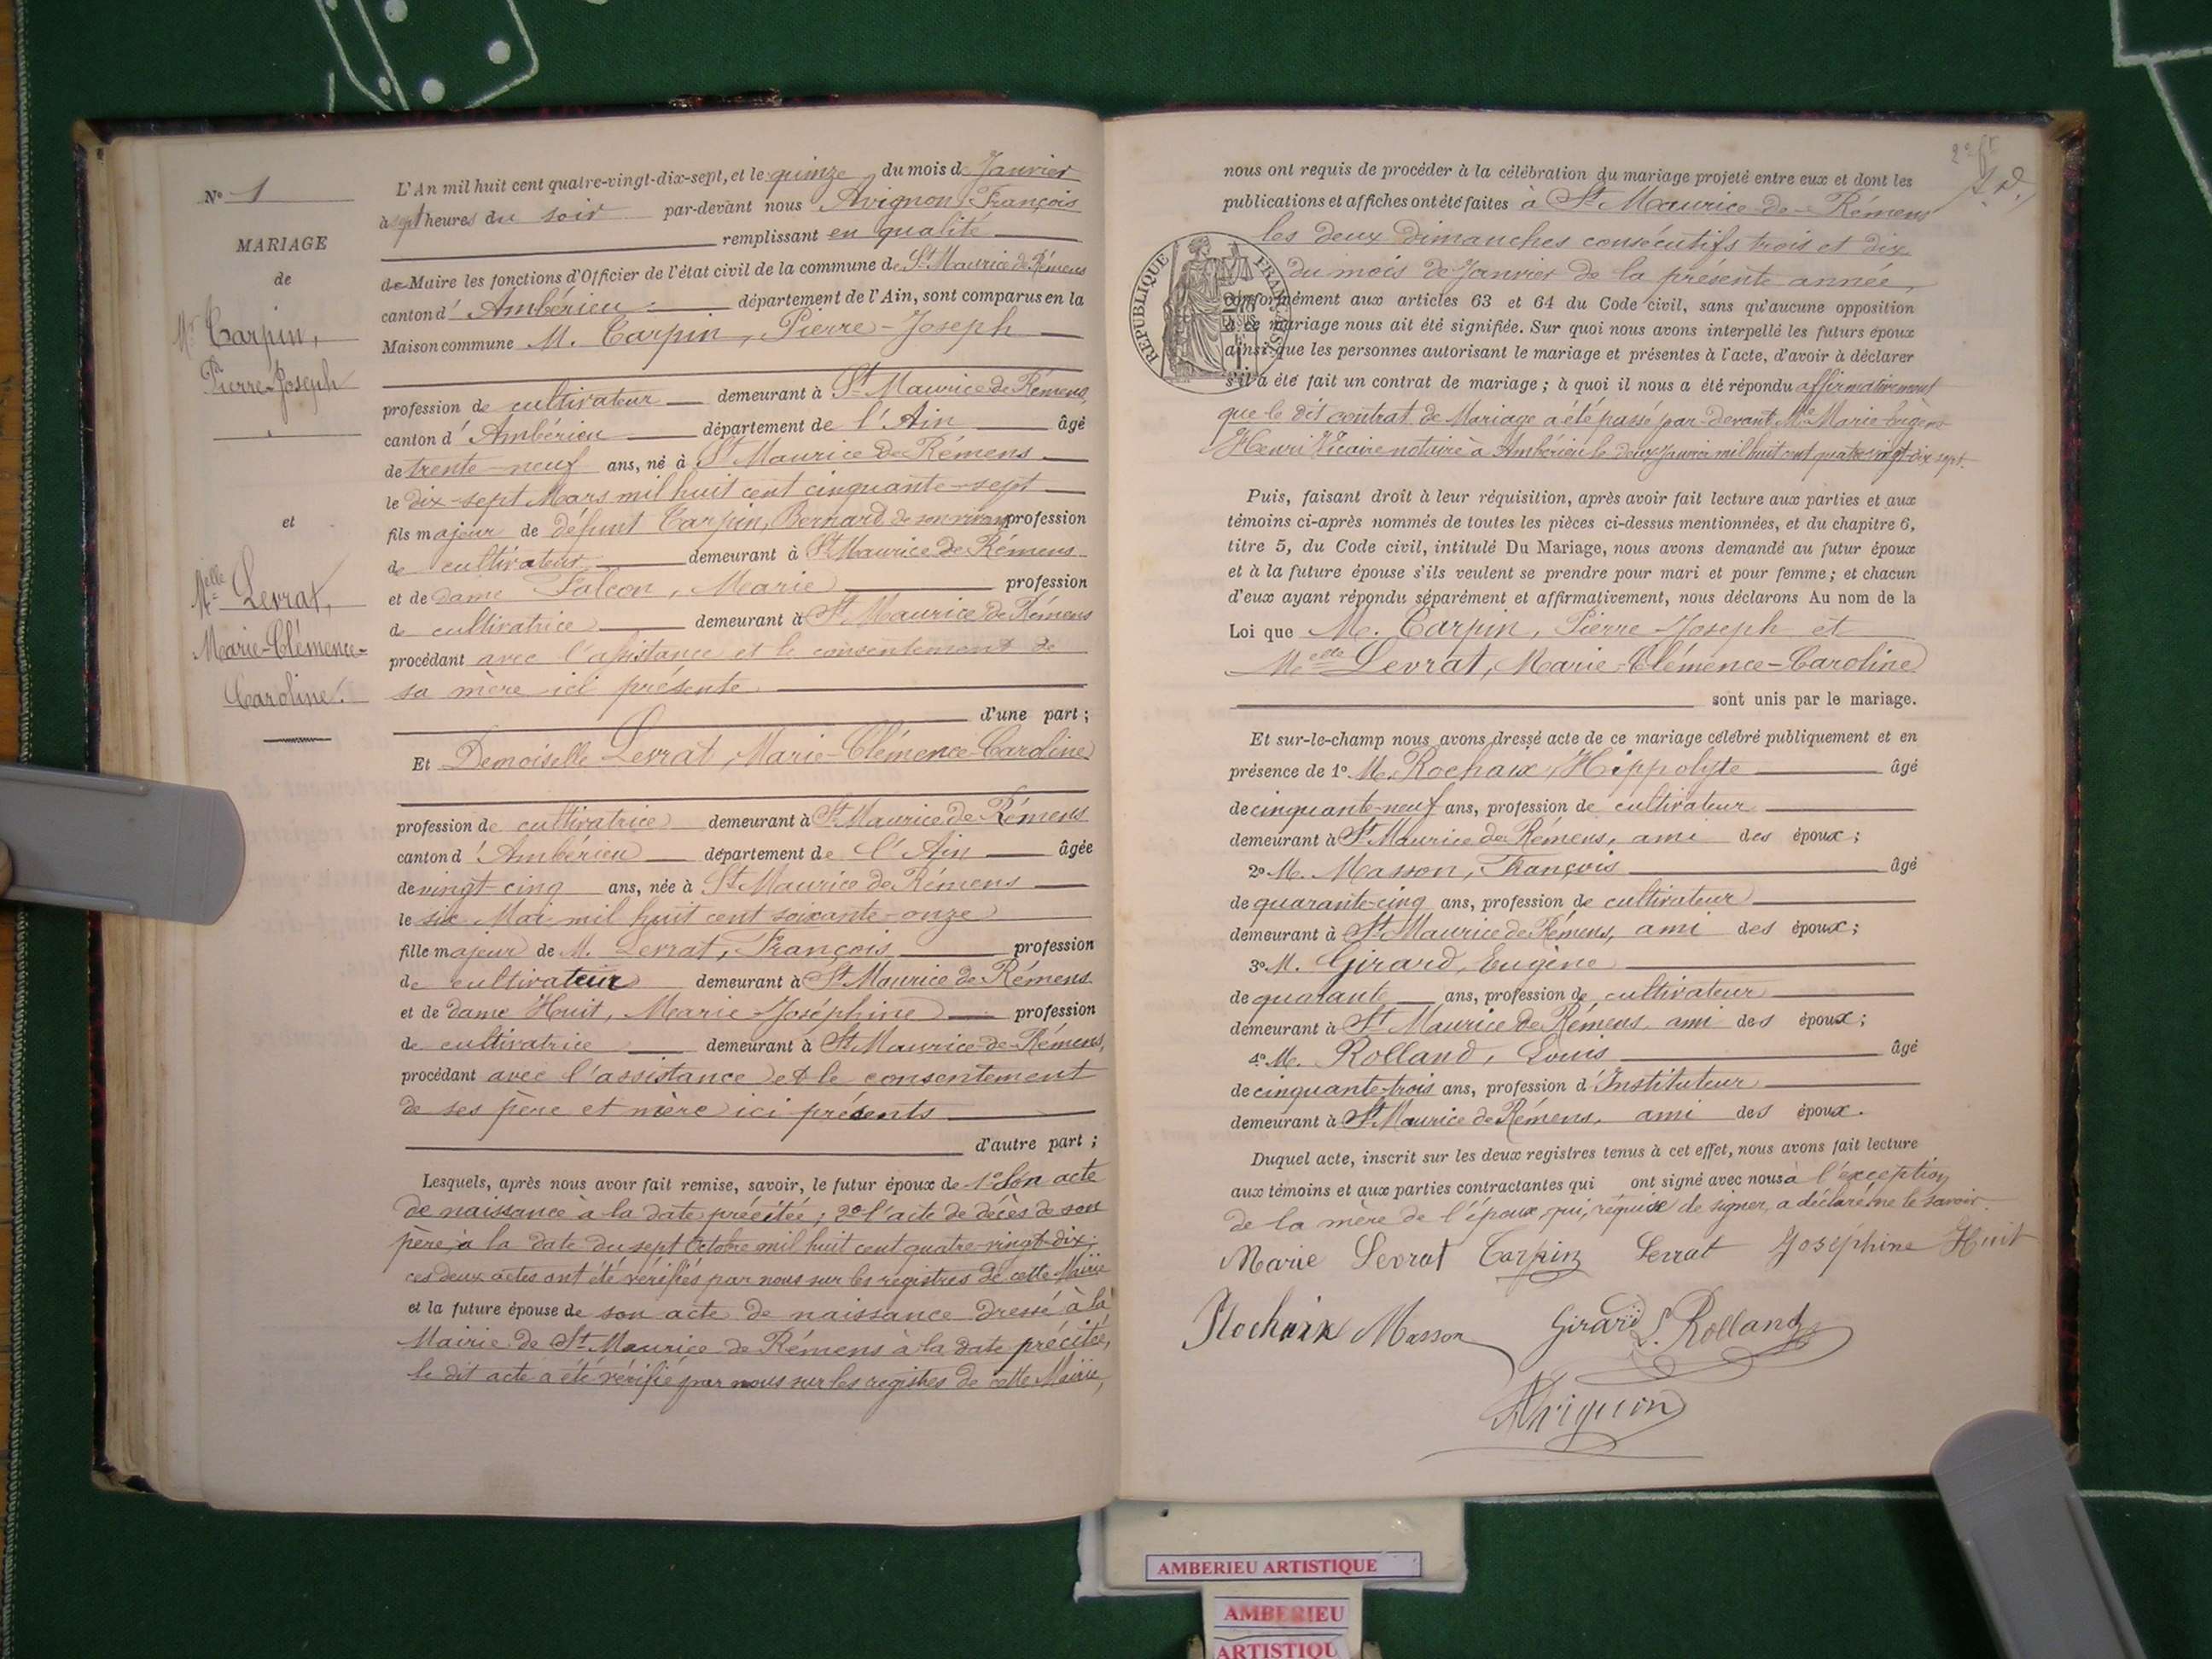 N° 1
MARIAGE
de
Mr Carpin,
Pierre-Joseph
et
Melle Levrat,
Marie-Clémence-
Caroline.
L'An mil huit cent quatre-vingt-dix-sept, et le quinze du mois de Janvier
à sept heures du soir par-devant nous Avignon, François
remplissant en qualité
de Maire les fonctions d'Officier de l'état civil de la commune de St Maurice de Rémens
canton d'Ambérieu département de l'Ain, sont comparus en la
Maison commune M. Carpin, Pierre-Joseph
profession de cultivateur demeurant à St Maurice de Rémens,
canton d'Ambérieu département de l'Ain âgé
de trente-neuf ans, né à St Maurice de Rémens
le dix-sept Mars mil huit cent cinquante-sept
fils majeur de défunt Carpin, Bernard, de son vivant profession
de cultivateur demeurant à St Maurice de Rémens
et de dame Falcon, Marie profession
de cultivatrice demeurant à St Maurice de Rémens
procédant avec l'assistance et le consentement de
sa mère ici présente
d'une part ;
Et Demoiselle Levrat, Marie-Clémence-Caroline
profession de cultivatrice demeurant à St Maurice de Rémens
canton d'Ambérieu département de l'Ain âgée
de vingt-cinq ans, née à St Maurice de Rémens
le six Mai mil huit cent soixante-onze
fille majeur de M. Levrat, François profession
de cultivateur demeurant à St Maurice de Rémens
et de dame Huit, Marie-Joséphine profession
de cultivatrice demeurant à St Maurice-de-Rémens,
procédant avec l'assistance et le consentement
de ses père et mère ici présents
d'autre part ;
Lesquels, après nous avoir fait remise, savoir, le futur époux de 1° Son acte
de naissance à la date précitée ; 2° l'acte de décès de son
père, à la date du sept Octobre mil huit cent quatre-vingt-dix ;
ces deux actes ont été vérifiés par nous sur les registres de cette Mairie
et la future épouse de son acte de naissance dressé à la
Mairie de St Maurice de Rémens à la date précitée,
le dit acte a été vérifié par nous sur les registres de cette Mairie,
nous ont requis de procéder à la célébration du mariage projeté entre eux et dont les
publications et affiches ont été faites à St Maurice-de-Rémens
les deux dimanches consécutifs trois et dix
du mois de Janvier de la présente année,
RÉPUBLIQUE FRANÇAISE
conformément aux articles 63 et 64 du Code civil, sans qu'aucune opposition
à ce mariage nous ait été signifiée. Sur quoi nous avons interpellé les futurs époux
ainsi que les personnes autorisant le mariage et présentes à l'acte, d'avoir à déclarer
s'il a été fait un contrat de mariage ; à quoi il nous a été répondu affirmativement
que le dit contrat de Mariage a été passé par-devant Me Marie-Eugène
Henri Vicaire notaire à Ambérieu le deux Janvier mil huit cent quatre-vingt-dix-sept.
Puis, faisant droit à leur réquisition, après avoir fait lecture aux parties et aux
témoins ci-après nommés de toutes les pièces ci-dessus mentionnées, et du chapitre 6,
titre 5, du Code civil, intitulé Du Mariage, nous avons demandé au futur époux
et à la future épouse s'ils veulent se prendre pour mari et pour femme ; et chacun
d'eux ayant répondu séparément et affirmativement, nous déclarons Au nom de la
Loi que M. Carpin, Pierre-Joseph et
Melle Levrat, Marie-Clémence-Caroline
sont unis par le mariage.
Et sur-le-champ nous avons dressé acte de ce mariage célébré publiquement et en
présence de 1° M. Rochaix, Hippolyte âgé
de cinquante-neuf ans, profession de cultivateur
demeurant à St Maurice de Rémens, ami des époux ;
2° M. Masson, François âgé
de quarante-cinq ans, profession de cultivateur
demeurant à St Maurice de Rémens, ami des époux ;
3° M. Girard, Eugène
de quarante ans, profession de cultivateur
demeurant à St Maurice de Rémens ami des époux ;
4° M. Rolland, Louis âgé
de cinquante-trois ans, profession d'Instituteur
demeurant à St Maurice de Rémens, ami des époux.
Duquel acte, inscrit sur les deux registres tenus à cet effet, nous avons fait lecture
aux témoins et aux parties contractantes qui ont signé avec nous à l'exception
de la mère de l'époux, qui, requise de signer, a déclaré ne le savoir.
Marie Levrat Carpin Levrat Joséphine Huit
Rochaix Masson Girard L. Rolland
Avignon
AMBERIEU ARTISTIQUE
AMBERIEU
ARTISTIQU